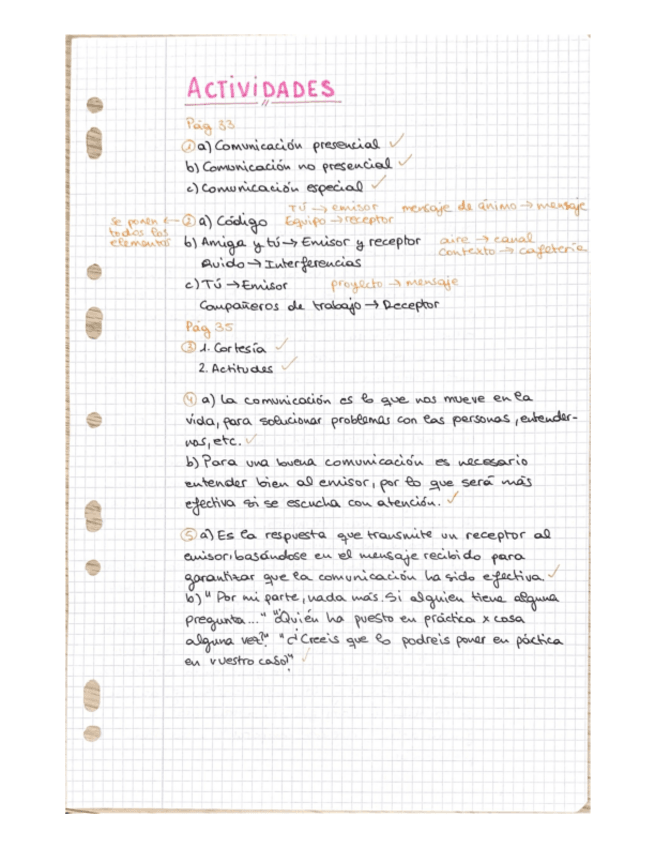 ACTIVIDADES
Pág 33
① a) Comunicación presencial ✓
b) Comunicación no presencial ✓
c) Comunicación especial ✓
Tú → emisor mensaje de ánimo → mensaje
se ponen ← ② a) Código Equipo → receptor
todos los
elementos b) Amiga y tú → Emisor y receptor aire → canal
contexto → cafetería
Ruido → Interferencias
c) Tú → Emisor proyecto → mensaje
Compañeros de trabajo → Receptor
Pág 35
③ 1. Cortesía ✓
2. Actitudes ✓
④ a) La comunicación es lo que nos mueve en la
vida, para solucionar problemas con las personas, entender-
nos, etc. ✓
b) Para una buena comunicación es necesario
entender bien al emisor, por lo que será más
efectiva si se escucha con atención. ✓
⑤ a) Es la respuesta que transmite un receptor al
emisor, basándose en el mensaje recibido para
garantizar que la comunicación ha sido efectiva ✓
b) "Por mi parte, nada más. Si alguien tiene alguna
pregunta..." "¿Quién ha puesto en práctica x cosa
alguna vez?" "¿Creeis que lo podreis poner en páctica
en vuestro caso?" ✓